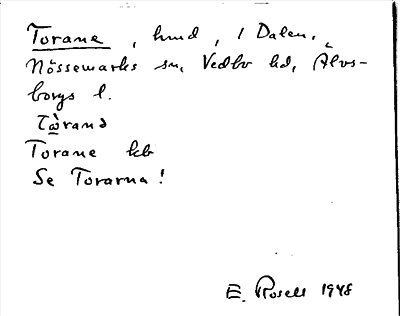 Torane, hmd, i Dalen,
Nössemarks sn, Vedbo hd, Älvs-
borgs l.
Torane kb
Se Torarna!
E. Rosell 1948